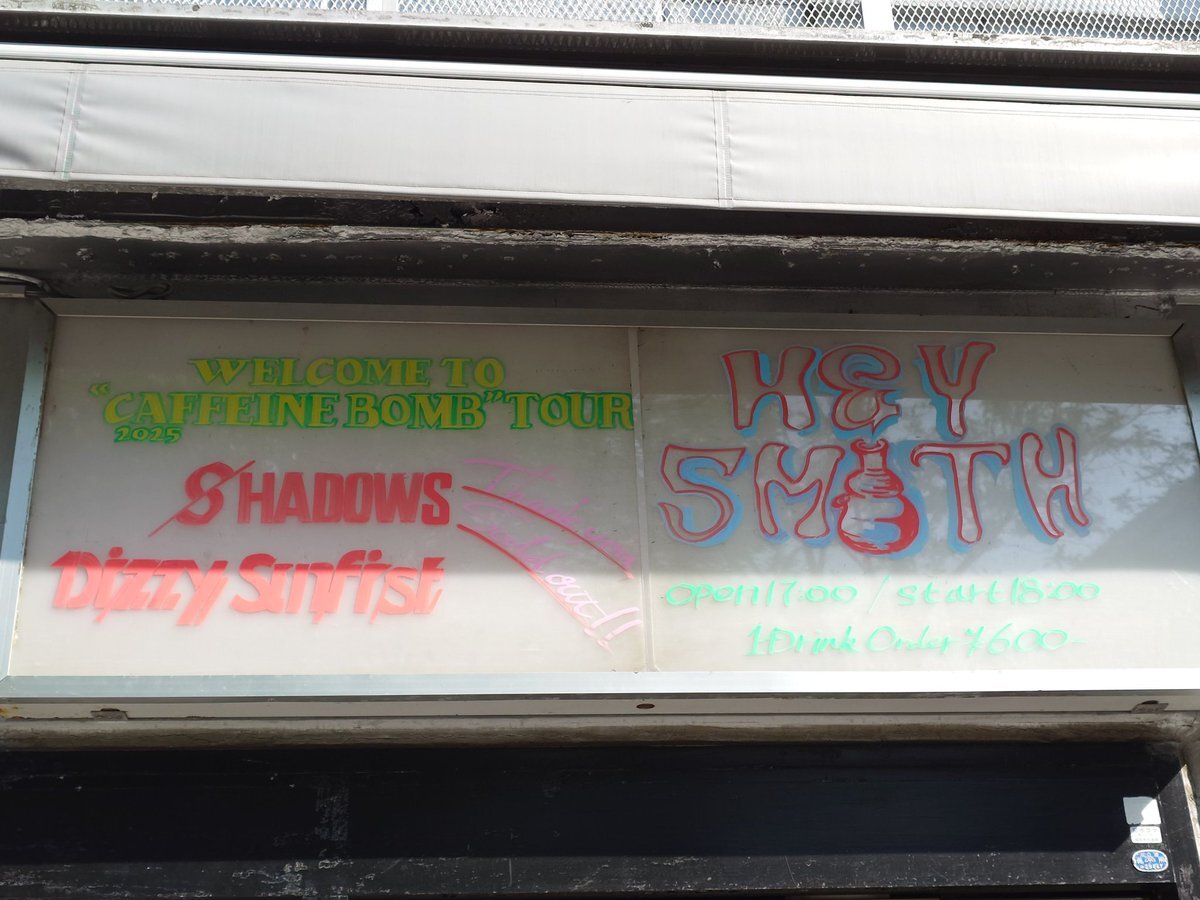 WELCOME TO
"CAFFEINE BOMB" TOUR
2025
SHADOWS
Dizzy Sunfist
Thank you
Sold out!!
HEY
SMITH
open 17:00 / start 18:00
1Drink Order ¥600-